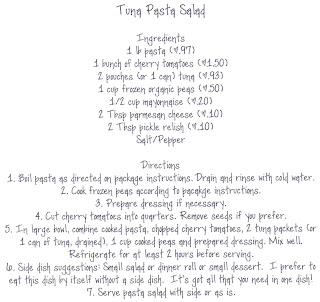 Tuna Pasta Salad
Ingredients
1 lb pasta (*.97)
1 bunch of cherry tomatoes (*1.50)
2 pouches (or 1 can) tuna (*.93)
1 cup frozen organic peas (*.50)
1/2 cup mayonnaise (*.20)
2 Tbsp parmesan cheese (*.10)
2 Tbsp pickle relish (*.10)
Salt/Pepper
Directions
1. Boil pasta as directed on package instructions. Drain and rinse with cold water.
2. Cook frozen peas according to pacakge instructions.
3. Prepare dressing if necessary.
4. Cut cherry tomatoes into quarters. Remove seeds if you prefer.
5. In large bowl, combine cooked pasta, chopped cherry tomatoes, 2 tuna packets (or
1 can of tuna, drained), 1 cup cooked peas and prepared dressing. Mix well.
Refrigerate for at least 2 hours before serving.
6. Side dish suggestions: Small salad or dinner roll or small dessert. I prefer to
eat this dish by itself without a side dish. It's got all that you need in one dish!
7. Serve pasta salad with side or as is.